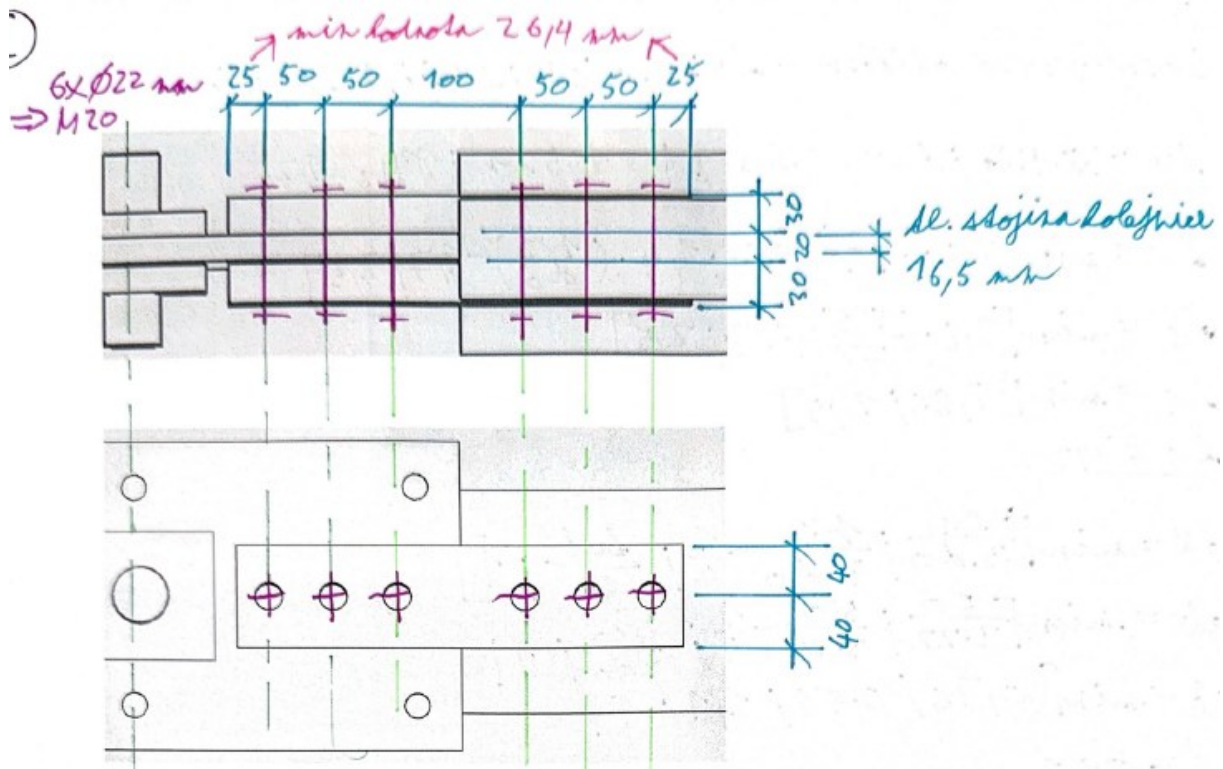 min hodnota 26,4 mm
6x Ø22 mm
⇒ M20
25 50 50 100 50 50 25
30
20
30
tl. stojina kolajnice
16,5 mm
40
40